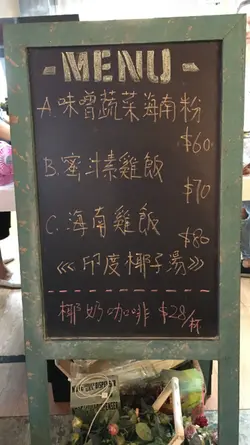 - MENU -
A. 味噌蔬菜海南粉
$60
B. 蜜汁素雞飯
$70
C. 海南雞飯
$80
<<< 印度椰子湯 >>>
椰奶咖啡 $28/杯